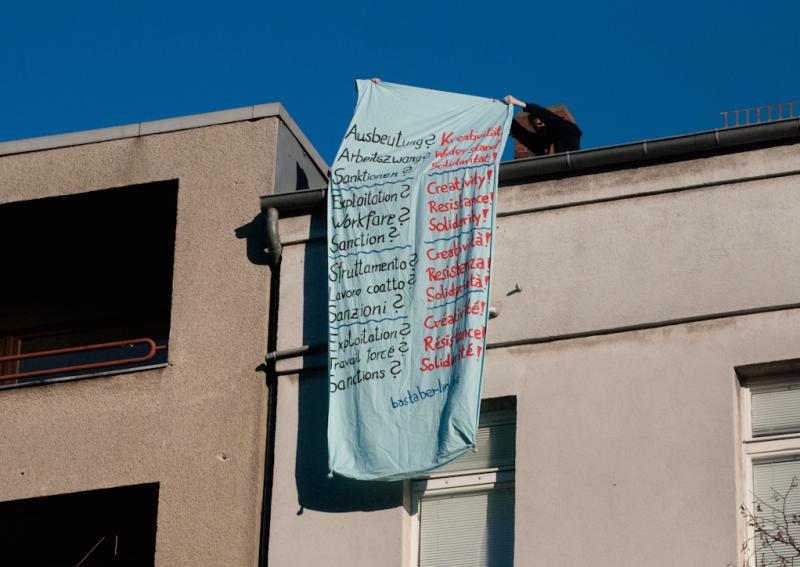 Ausbeutung? Kreativität
Arbeitszwang? Widerstand
Sanktionen? Solidarität!
Exploitation? Creativity!
Workfare? Resistance!
Sanction? Solidarity!
Struttamento? Creatività!
Lavoro coatto? Resistenza!
Sanzioni? Solidarietà!
Exploitation? Creativité!
Travail forcé? Résistance!
Sanctions? Solidarité!
bastaberlin.de